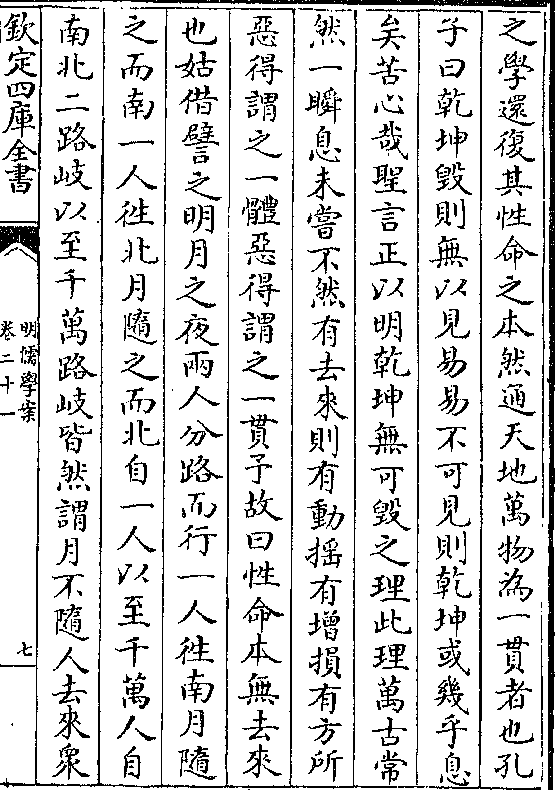 之學還復其性命之本然通天地萬物為一貫者也孔
子曰乾坤毀則無以見易易不可見則乾坤或幾乎息
矣苦心哉聖言正以明乾坤無可毀之理此理萬古常
然一瞬息未嘗不然有去來則有動揺有增損有方所
惡得謂之一體惡得謂之一貫予故曰性命本無去來
也姑借譬之明月之夜兩人分路而行一人徃南月隨
之而南一人徃北月隨之而北自一人以至千萬人自
南北二路岐以至千萬路岐皆然謂月不隨人去來衆
欽定四庫全書
明儒學案
卷二十一
七